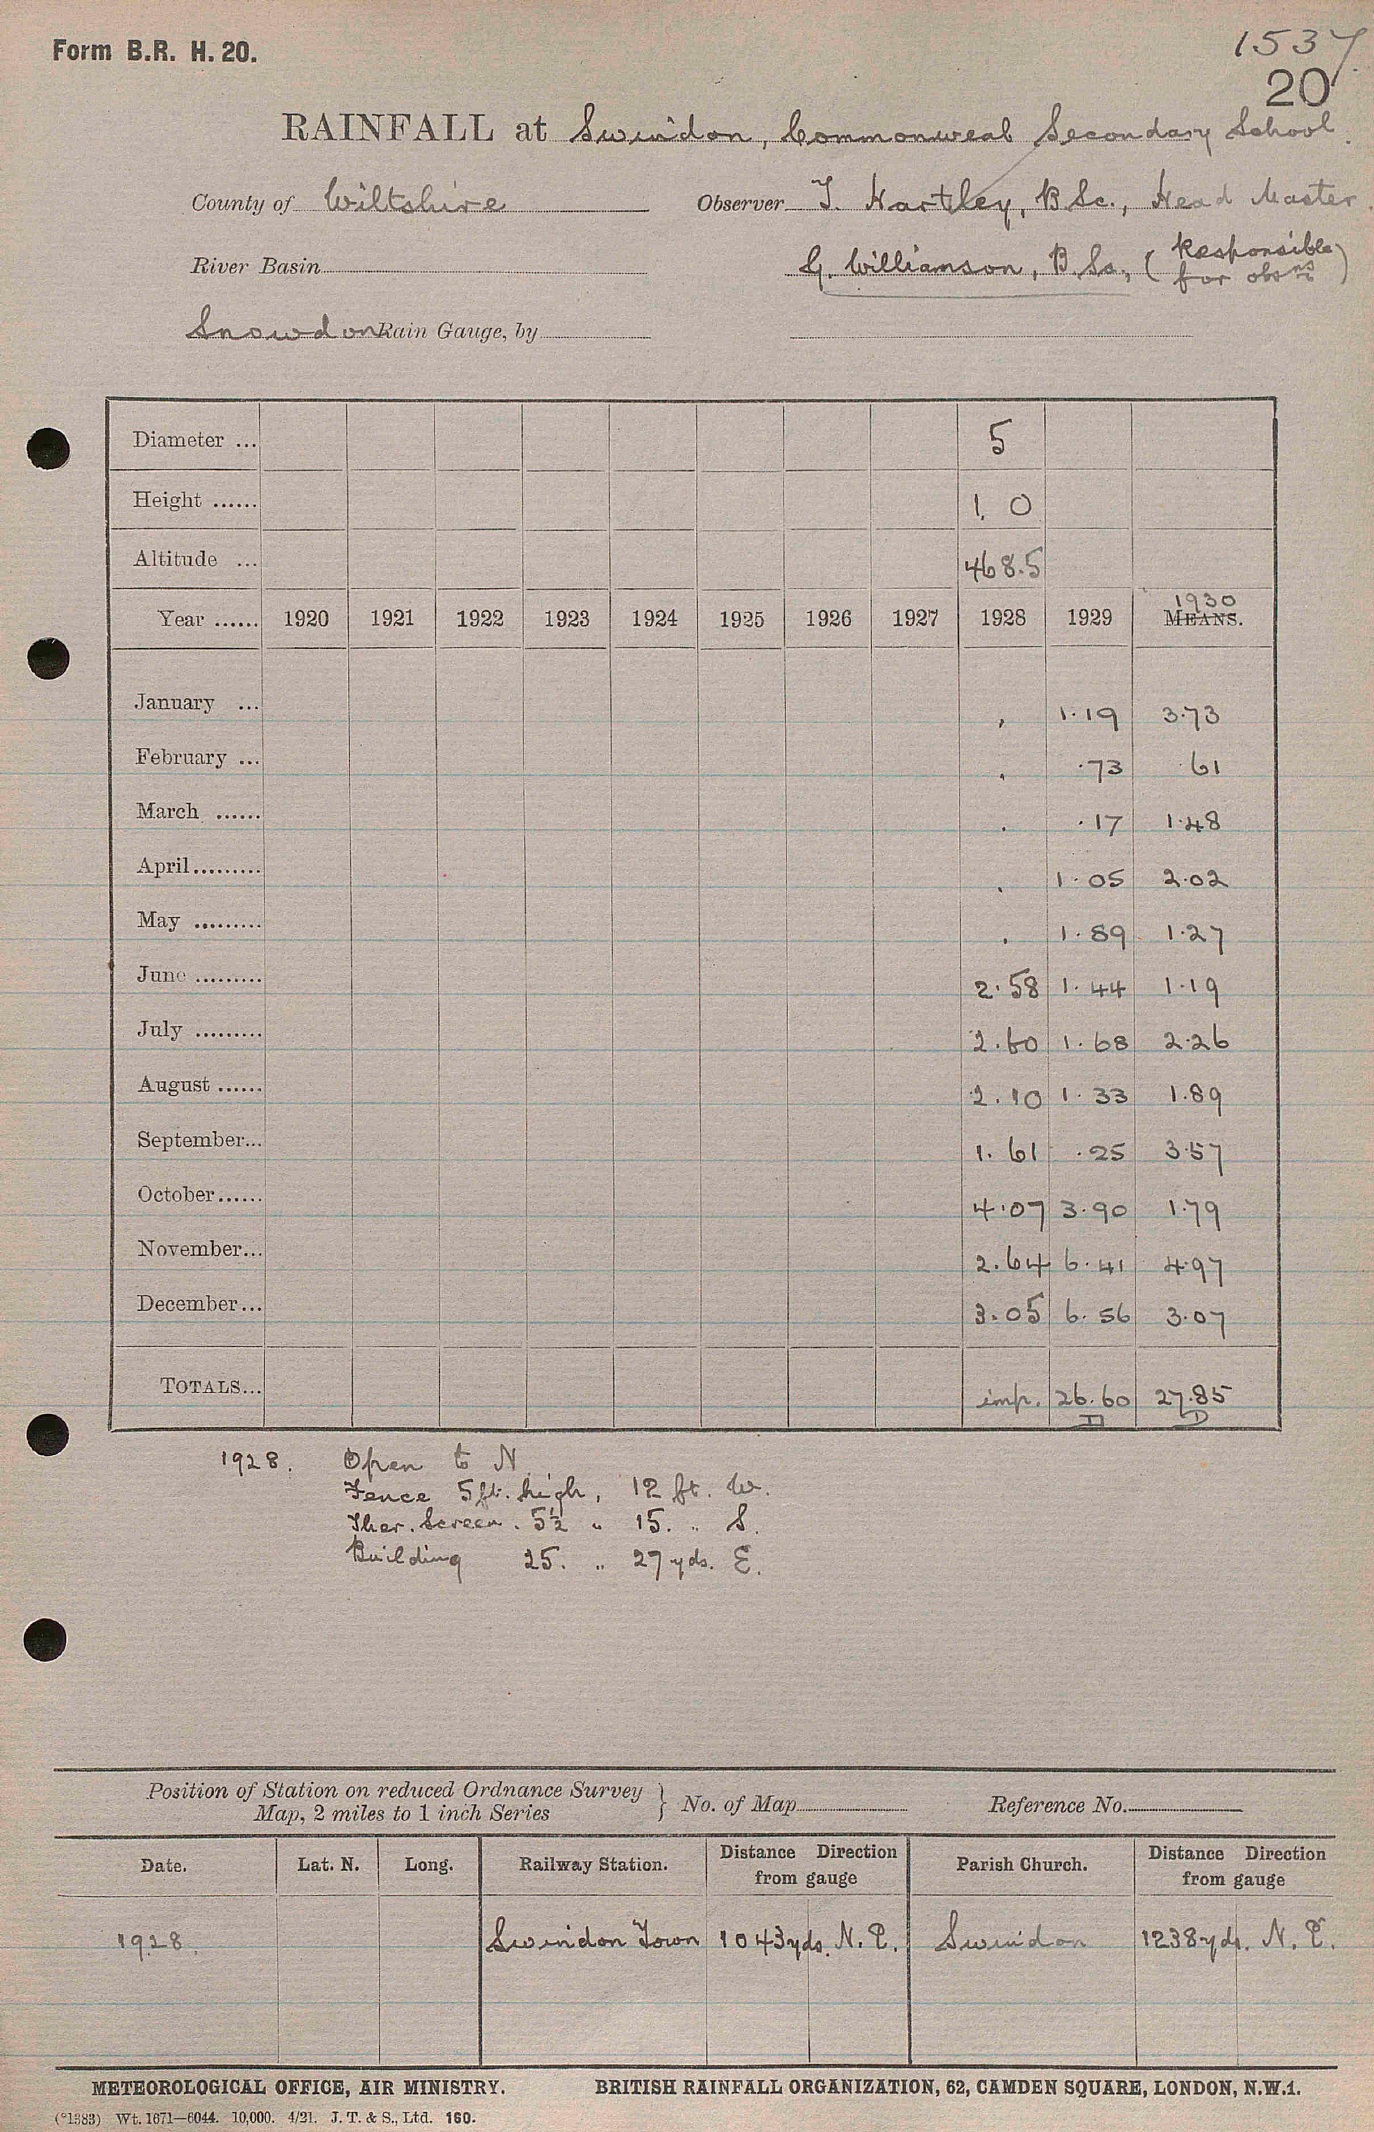 Form B.R. H. 20.
1537
20
RAINFALL at Swindon, Commonweal Secondary School.
County of Wiltshire Observer T. Hartley, B.Sc., Head Master.
River Basin G. Williamson, B.Sc., (Responsible for obsns)
Snowdon Rain Gauge, by
Diameter ... 5
Height ...... 1. 0
Altitude ... 468.5
Year ...... 1920 1921 1922 1923 1924 1925 1926 1927 1928 1929 1930 MEANS.
January ... , 1.19 3.73
February ... . .73 .61
March ...... . .17 1.48
April......... . 1.05 2.02
May ......... . 1.89 1.27
June ......... 2.58 1.44 1.19
July ......... 2.60 1.68 2.26
August ...... 2.10 1.33 1.89
September... 1.61 .25 3.57
October...... 4.07 3.90 1.79
November... 2.64 6.41 4.97
December... 3.05 6.56 3.07
TOTALS... imp. 26.60 27.85
D D
1928. Open to N
Fence 5 ft. high, 12 ft. W.
Ther. Screen. 5½ " 15. " S.
Building 25. " 27 yds. E.
Position of Station on reduced Ordnance Survey
Map, 2 miles to 1 inch Series } No. of Map Reference No.
Date. Lat. N. Long. Railway Station. Distance Direction from gauge Parish Church. Distance Direction from gauge
1928. Swindon Town 1043 yds. N. E. Swindon 1238 yds. N. E.
METEOROLOGICAL OFFICE, AIR MINISTRY. BRITISH RAINFALL ORGANIZATION, 62, CAMDEN SQUARE, LONDON, N.W.1.
(*1383) Wt. 1671—6044. 10,000. 4/21. J. T. & S., Ltd. 160.